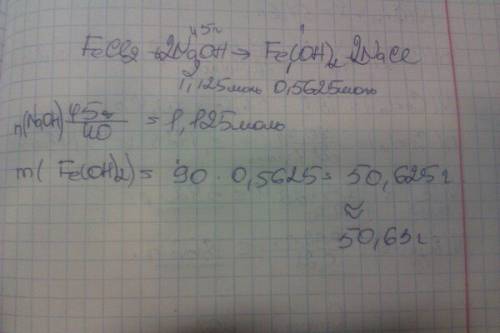 45г
FeCl2 + 2NaOH → Fe(OH)2 2NaCl
2
1,125моль 0,5625моль
n(NaOH) 45г/40 = 1,125моль
m( Fe(OH)2) = 90 · 0,5625 = 50,625г
≈
50,63г